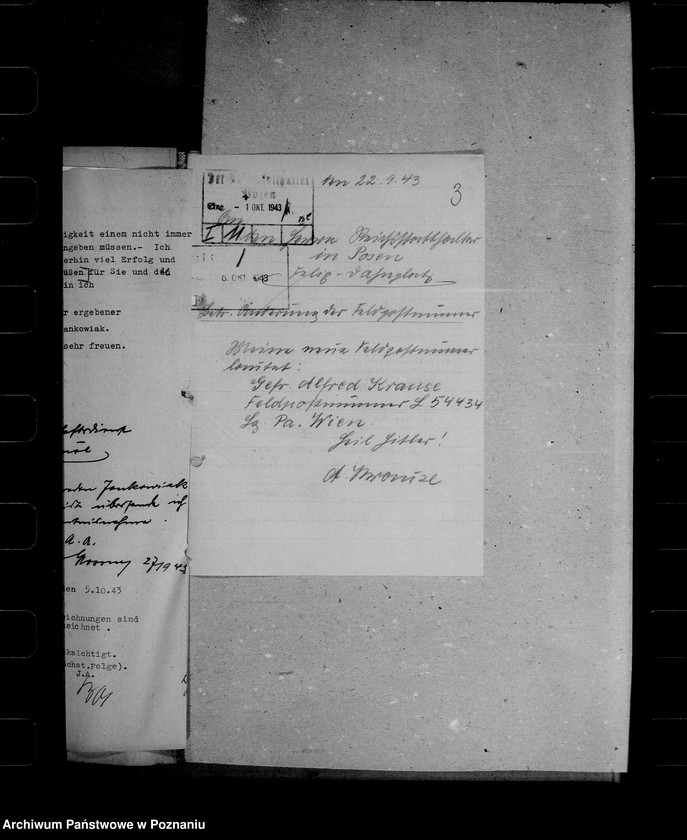 igkeit einem nicht immer
ngeben müssen.- Ich
erhin viel Erfolg und
für Sie und
in ich
r ergebener
ankowiak.
sehr freuen.
Jankowiak
übersende ich
a.a.
en 5.10.43
eichnungen sind
eichnet .
ksichtigt.
chst.Folge).
J.A.
den 22.9.43
3
Der
Posen
Eing. - 1 OKT. 1943
An
I
den Herrn Reichsstatthalter
in Posen
6. OKT. 1943
Betr. Änderung der Feldpostnummer
Meine neue Feldpostnummer
lautet:
Gefr. Alfred Krause
Feldpostnummer L 54434
Lg. Pa. Wien
Heil Hitler!
A. Krause
Archiwum Państwowe w Poznaniu